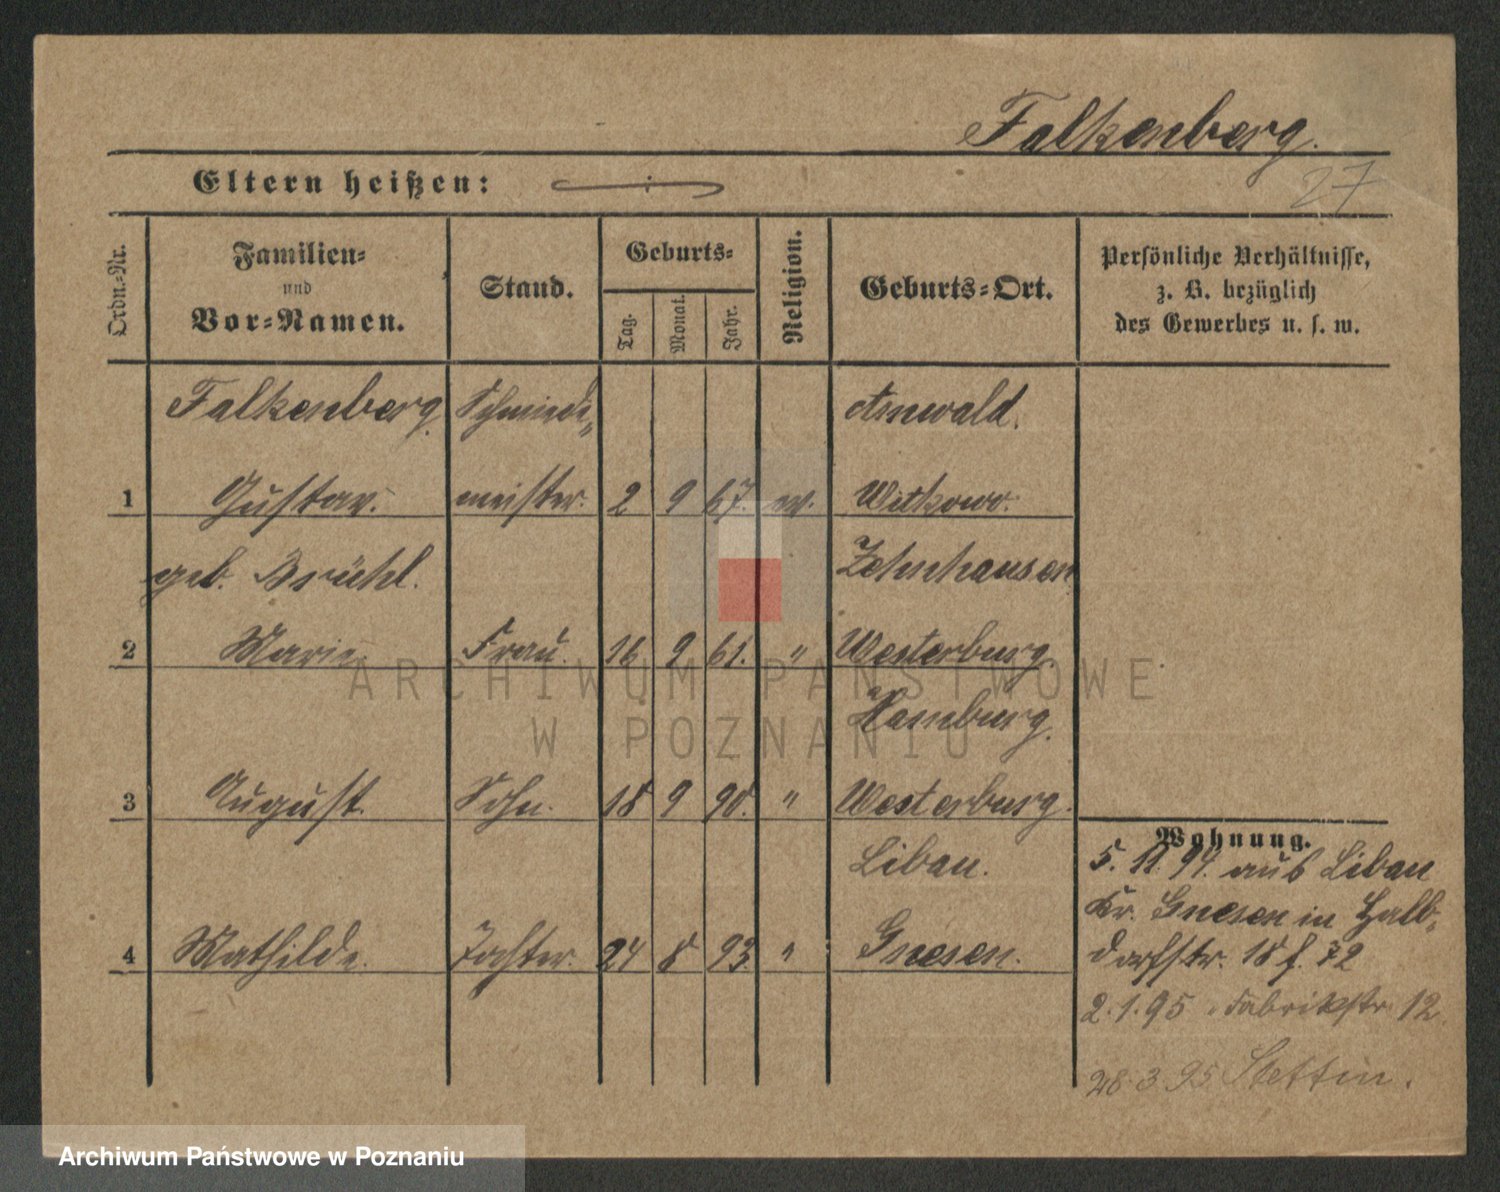 Falkenberg.
27
Eltern heißen:
Ordn.-Nr.
Familien-
und
Vor-Namen.
Stand.
Geburts-
Tag.
Monat.
Jahr.
Religion.
Geburts-Ort.
Persönliche Verhältnisse,
z. B. bezüglich
des Gewerbes u. s. w.
Falkenberg Schmiede- Arnwald.
1 Gustav. meister. 2 9 67. ev. Witkowo.
geb. Brühl. Zehnhausen
2 Marie Frau. 16 9 61. " Westerburg.
Hamburg.
3 August. Sohn. 18 9 90. " Westerburg.
Liban.
4 Mathilde. Tochter. 24 8 93. " Gnesen.
Wohnung.
5. 11. 94. aus Liban
Kr. Gnesen in Halb-
dorfstr. 18 f. 72
2.1.95 Fabrikstr. 12.
28.3.95 Stettin.
ARCHIWUM PAŃSTWOWE
W POZNANIU
Archiwum Państwowe w Poznaniu